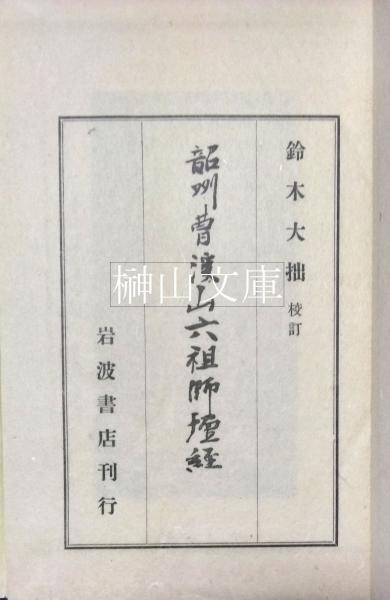 鈴木大拙 校訂
韶州曹溪山六祖師壇経
岩波書店刊行
榊山文庫